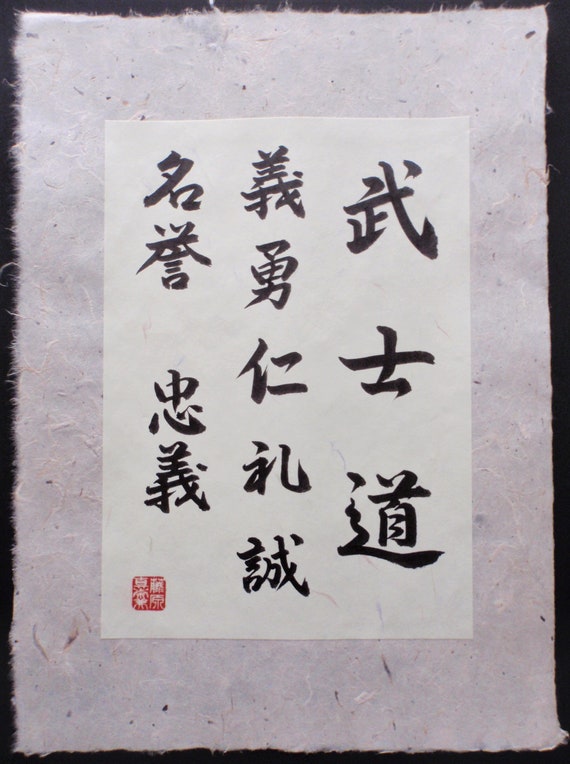 武士道
義勇仁礼誠
名誉 忠義
藤原